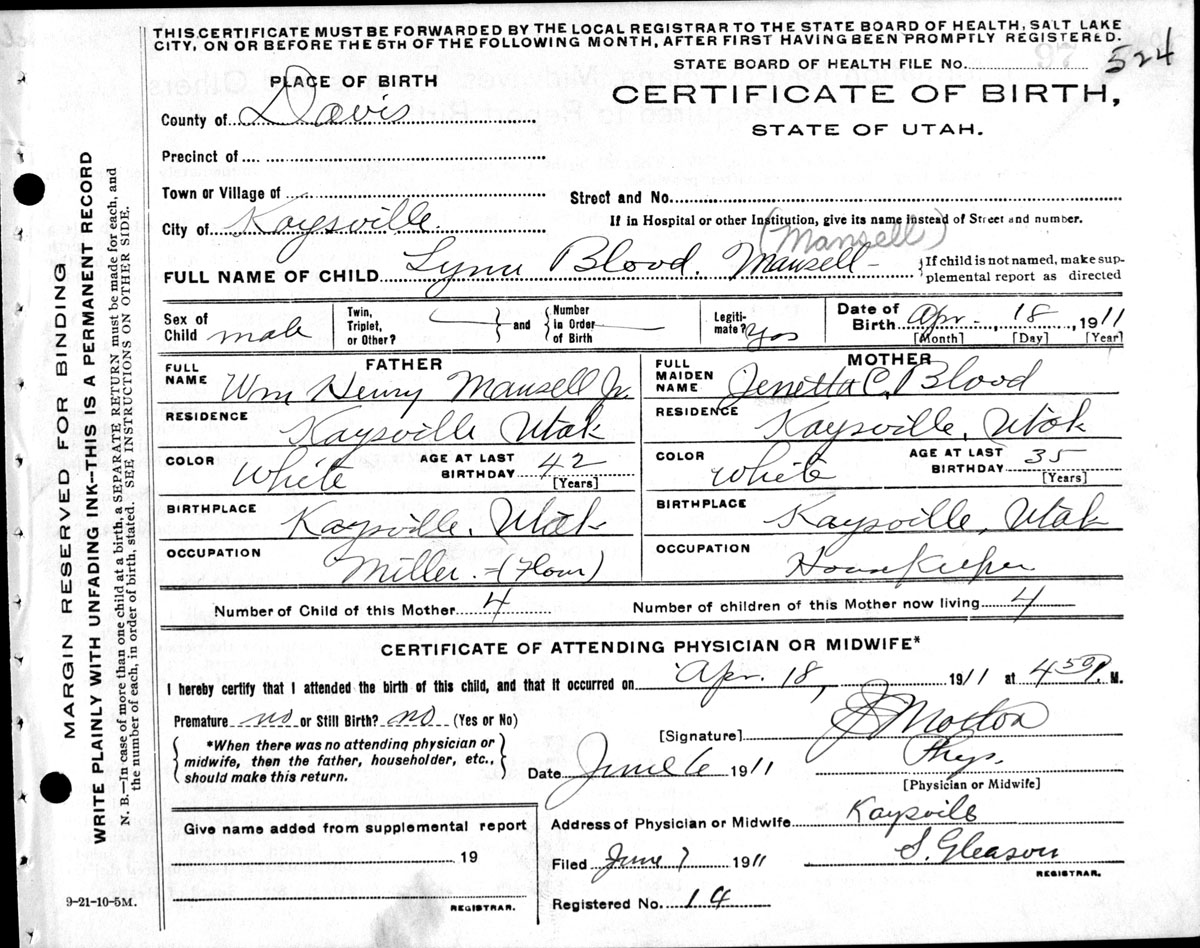 THIS CERTIFICATE MUST BE FORWARDED BY THE LOCAL REGISTRAR TO THE STATE BOARD OF HEALTH, SALT LAKE
CITY, ON OR BEFORE THE 5TH OF THE FOLLOWING MONTH, AFTER FIRST HAVING BEEN PROMPTLY REGISTERED.
STATE BOARD OF HEALTH FILE NO. 97 524
PLACE OF BIRTH
CERTIFICATE OF BIRTH,
STATE OF UTAH.
County of Davis
Precinct of
Town or Village of
Street and No.
City of Kaysville
If in Hospital or other Institution, give its name instead of Street and number.
(Mansell)
FULL NAME OF CHILD Lynn Blood Mansell
{If child is not named, make sup-
plemental report as directed
Sex of Child male
Twin, Triplet, or Other?
and
Number in Order of Birth
Legiti-mate? Yes
Date of Birth Apr. 18, 1911
[Month] [Day] [Year]
FATHER
FULL NAME Wm Henry Mansell Jr.
RESIDENCE Kaysville Utah
COLOR White AGE AT LAST BIRTHDAY 42
[Years]
BIRTHPLACE Kaysville, Utah
OCCUPATION Miller = (Flour)
MOTHER
FULL MAIDEN NAME Jenetta C. Blood
RESIDENCE Kaysville, Utah
COLOR White AGE AT LAST BIRTHDAY 35
[Years]
BIRTHPLACE Kaysville, Utah
OCCUPATION Housekeeper
Number of Child of this Mother 4 Number of children of this Mother now living 4
CERTIFICATE OF ATTENDING PHYSICIAN OR MIDWIFE*
I hereby certify that I attended the birth of this child, and that it occurred on Apr. 18, 1911 at 4 50 P. M.
Premature no or Still Birth? no (Yes or No)
*When there was no attending physician or
midwife, then the father, householder, etc.,
should make this return.
[Signature] Morton
Date June 6 1911 Phys.
[Physician or Midwife]
Give name added from supplemental report
19
REGISTRAR.
Address of Physician or Midwife Kaysville
Filed June 7 1911 S. Gleason
REGISTRAR.
Registered No. 14
9-21-10-5M.
MARGIN RESERVED FOR BINDING
WRITE PLAINLY WITH UNFADING INK--THIS IS A PERMANENT RECORD
N. B.—In case of more than one child at a birth, a SEPARATE RETURN must be made for each, and
the number of each, in order of birth, stated. SEE INSTRUCTIONS ON OTHER SIDE.